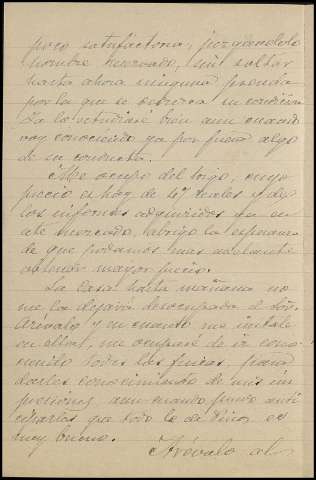 poco satisfactoria, juzgándolo
hombre reservado, sin soltar
hasta ahora ninguna prenda
por la que se
La estudiaré bien aun cuando
voy conociendo ya por fuera algo
de su conducta.
Me ocupo del trigo, cuyo
precio es hoy de 47 reales y de
los informes adquiridos en es-
ate mercado, abrigo la esperanza
de que podamos mas adelante
obtener mayor precio.
La casa hasta mañana no
me la dejará desocupada el Sr.
Arévalo y en cuanto me instale
en ella, me ocuparé de ir
todas las fincas, para
darles conocimiento de mis im-
presiones, aun cuando puedo anti-
ciparles que todo lo de Dinos es
muy bueno.
Arévalo al